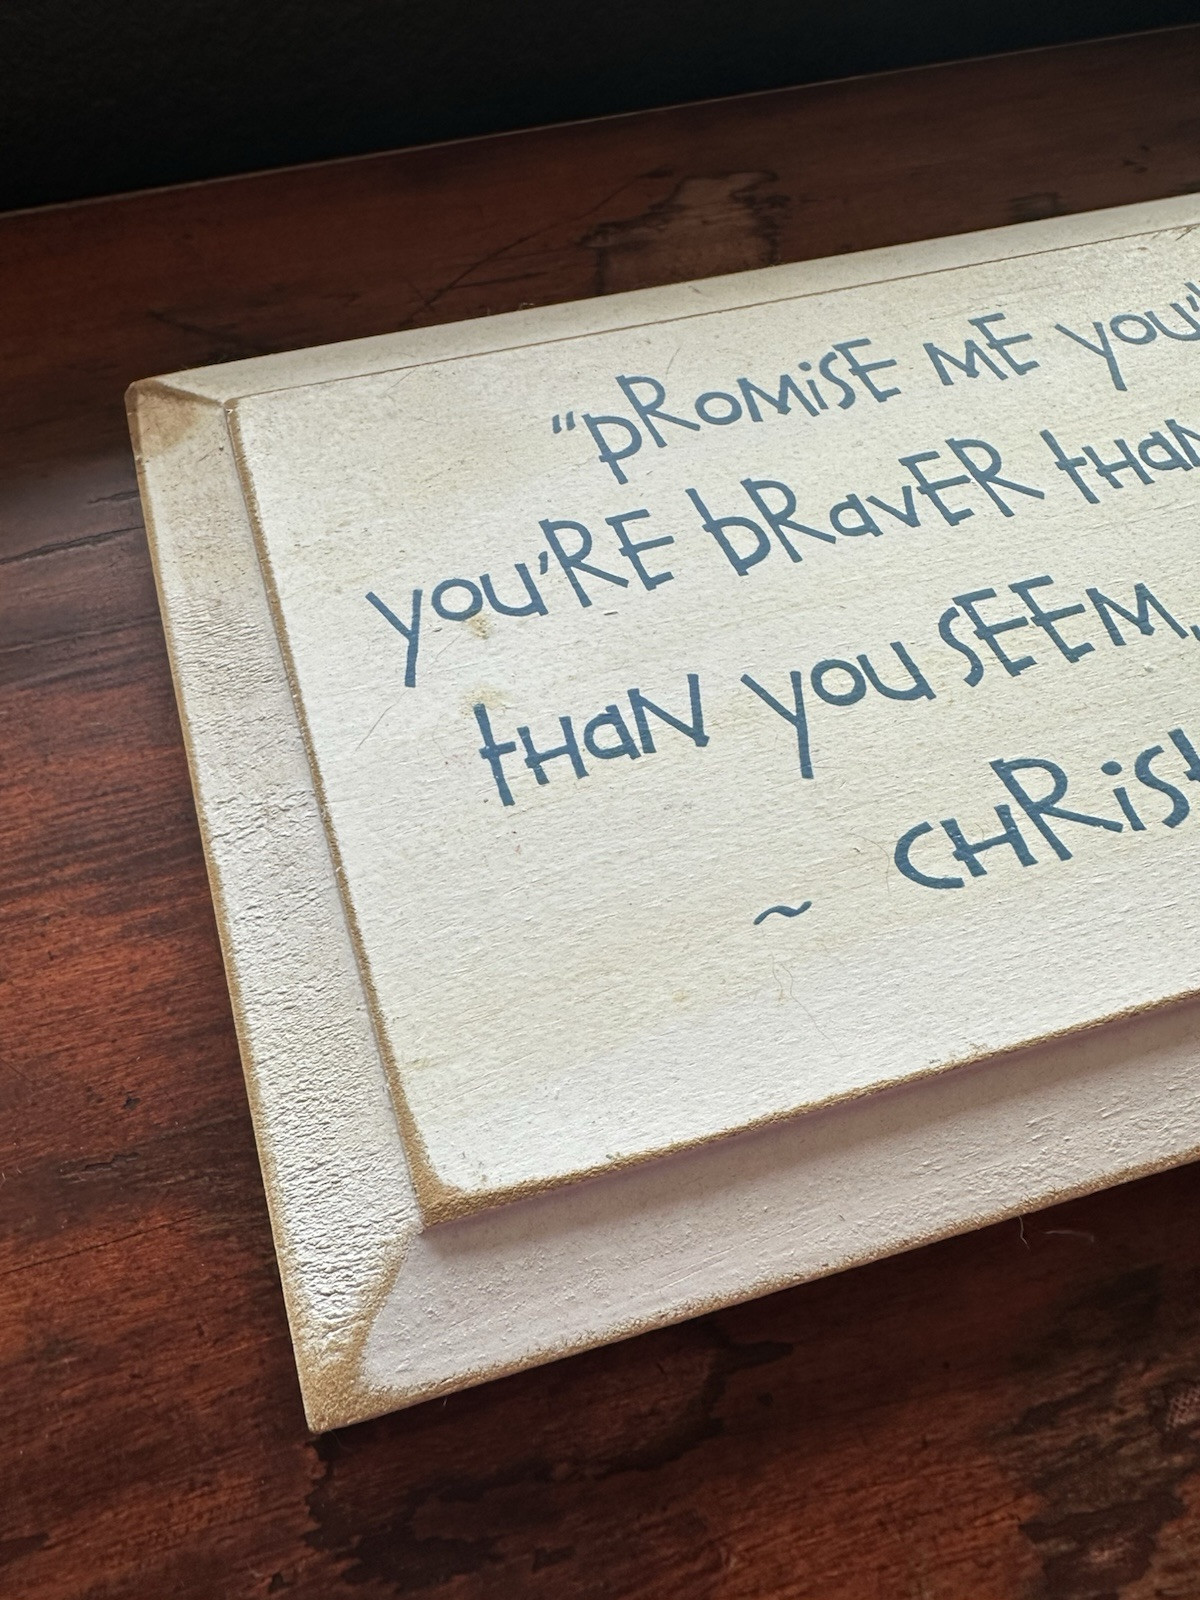 “PROMISE ME YOU'
YOU'RE BRAVER THAN
THAN YOU SEEM,
CHRIST
~